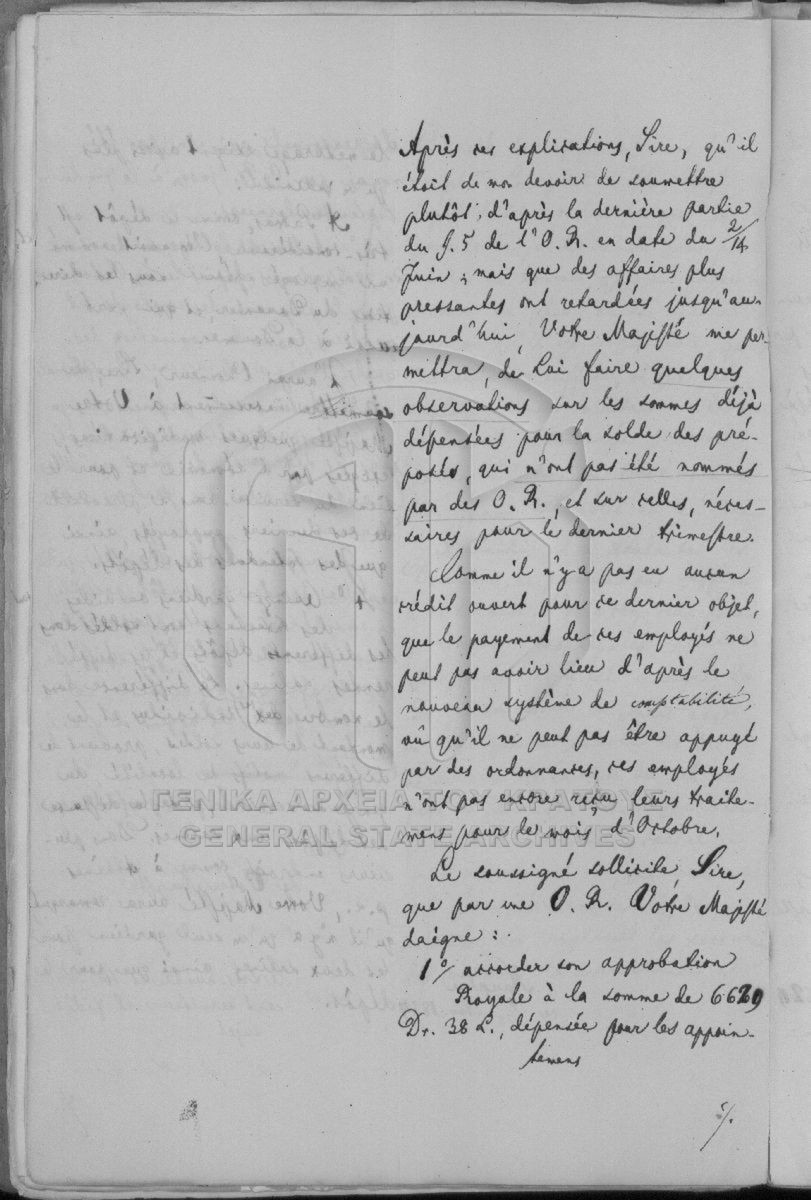 Après ces explications, Sire, qu'il
étoit de mon devoir de soumettre
plutôt, d'après la dernière partie
du §. 5 de l'O. R. en date du 2/14
Juin, mais que des affaires plus
pressantes ont retardées jusqu'au-
jourd'hui, Votre Majesté me per-
mettra, de Lui faire quelques
observations sur les sommes déjà
dépensées pour la solde des pré-
posés, qui n'ont pas été nommés
par des O. R., et sur celles, néces-
saires pour le dernier trimestre.
Comme il n'y a pas eu aucun
crédit ouvert pour ce dernier objet,
que le payement de ces employés ne
peut pas avoir lieu d'après le
nouveau système de comptabilité,
vû qu'il ne peut pas être appuyé
par des ordonnances, ces employés
n'ont pas encore reçu leurs traite-
mens pour le mois d'Octobre.
Le soussigné sollicite, Sire,
que par une O. R. Votre Majesté
daigne:
1°/ accorder son approbation
Royale à la somme de 6629
Dr. 38 L., dépensée pour les appoin-
temens
·/.
ΓΕΝΙΚΑ ΑΡΧΕΙΑ ΤΟΥ ΚΡΑΤΟΥΣ
GENERAL STATE ARCHIVES